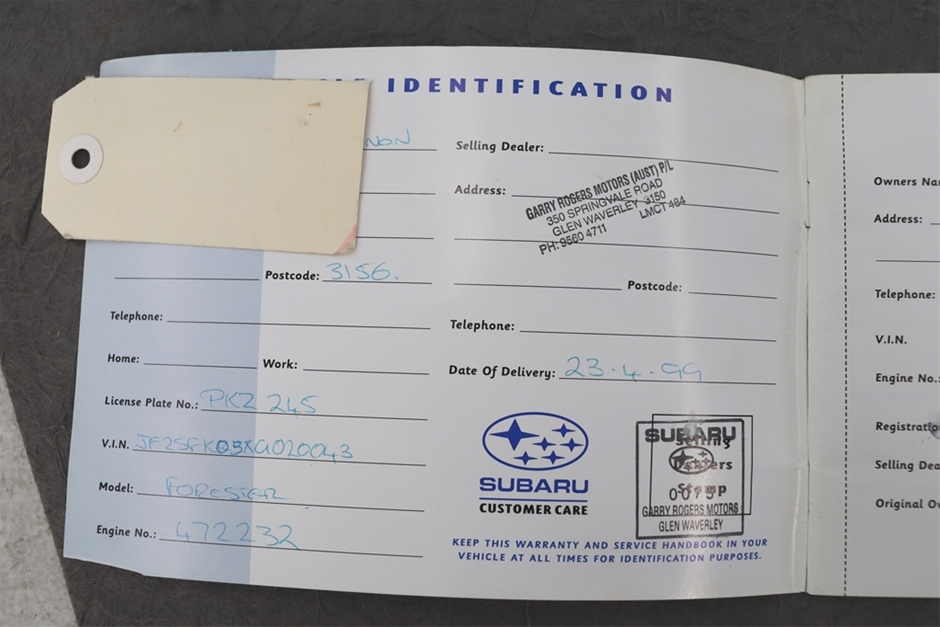 IDENTIFICATION
NON
Postcode: 3156.
Telephone:
Home: Work:
License Plate No.: PKZ 245
V.I.N.
Model: FORESTER
Engine No.: 472232
Selling Dealer:
Address:
GARRY ROGERS MOTORS (AUST) P/L
350 SPRINGVALE ROAD
GLEN WAVERLEY 3150
LMCT 484
PH: 9560 4711
Postcode:
Telephone:
Date Of Delivery: 23.4.99
SUBARU
CUSTOMER CARE
SUBARU
Selling
Dealers
Stamp
GARRY ROGERS MOTORS
GLEN WAVERLEY
KEEP THIS WARRANTY AND SERVICE HANDBOOK IN YOUR
VEHICLE AT ALL TIMES FOR IDENTIFICATION PURPOSES.
Owners Na
Address:
Telephone:
V.I.N.
Engine No.:
Registratio
Selling Dea
Original O